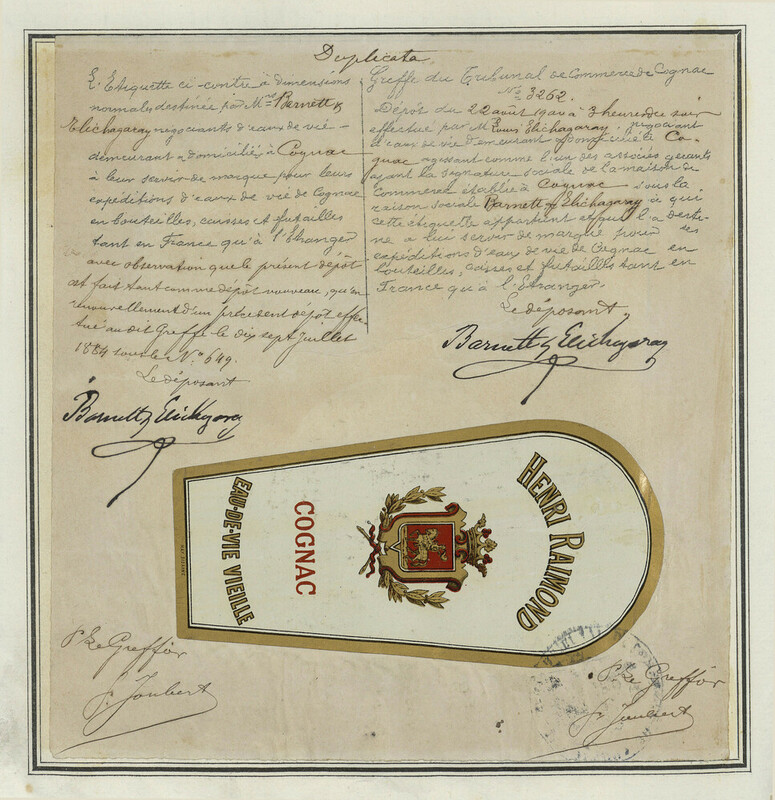 Duplicata
L'Etiquette ci-contre à dimensions
normales destinée par Mrs Barnett &
Elichagaray negociants d'eaux de vie -
demeurant & domiciliés à Cognac
à leur servir de marque pour leurs
expéditions d'eaux de vie de Cognac
en bouteilles, caisses et futailles
tant en France qu'à l'Etranger
avec observation que le présent dépôt
est fait tant comme dépôt nouveau, qu'en
renouvellement d'un précédent dépôt effec-
tué au dit Greffe le dix sept Juillet
1884 sous le No 649.
Le déposant
Barnett & Elichagaray
Greffe du Tribunal de Commerce de Cognac
No 3262.
Dépôt du 22 août 1900 à 3 heures du soir
effectué par M Louis Elichagaray, négociant
d'eaux de vie demeurant & domicilié à Co-
gnac agissant comme l'un des associés gérants
ayant la signature sociale de la maison de
Commerce établie à Cognac sous la
raison sociale Barnett & Elichagaray à qui
cette étiquette appartient et qui l'a desti-
née à lui servir de marque pour ses
expéditions d'eaux de vie de Cognac en
bouteilles, caisses et futailles tant en
France qu'à l'Etranger.
Le déposant,
Barnett & Elichagaray
HENRI RAIMOND
COGNAC
EAU-DE-VIE VIEILLE
P. Le Greffier
J. Joubert
P. Le Greffier
J. Joubert